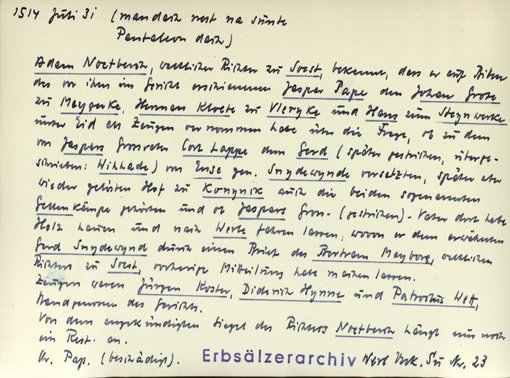 1514 Juli 31 (mandach nest na sunte
Pantaleon dach)
Adam Noetbroich, weltlicher Richter zu Soest, bekennt, dass er auf Bitten
des vor ihm im Gericht erschienenen Jesper Pape den Johan Grote
zu Meygerke, Herman Kloete zu Vleryke und Hans zum Steynwerke
unter Eid als Zeugen vernommen habe über die Frage, ob zu dem
von Jaspers Grossvater Cort Lappe dem Gerd (später gestrichen, überge-
schrieben: Wihhade) von Ense gen. Snydewynde versetzten, später aber
wieder gelösten Hof zu Konynck auch die beiden sogenannten
kämpe gehörten und ob Jaspers Gros- (gestrichen) -Vater dort habe
Holz hauen und nach Werle fahren lassen, wovon er dem erwähnten
Gerd Snydewynd durch einen Brief des Bertram Meyborg, weltlichen
Richters zu Soest, vorherige Mitteilung habe machen lassen.
Zeugen waren Jürgen Koster, Diderich Hynne und Patroclus Wett,
Standgenossen des Gerichts.
Von dem angekündigten Siegel des Richters Noetbroich hängt nur noch
ein Rest an.
Or. Pap. (beschädigt). Erbsälzerarchiv Werl Urk. Nr. 23